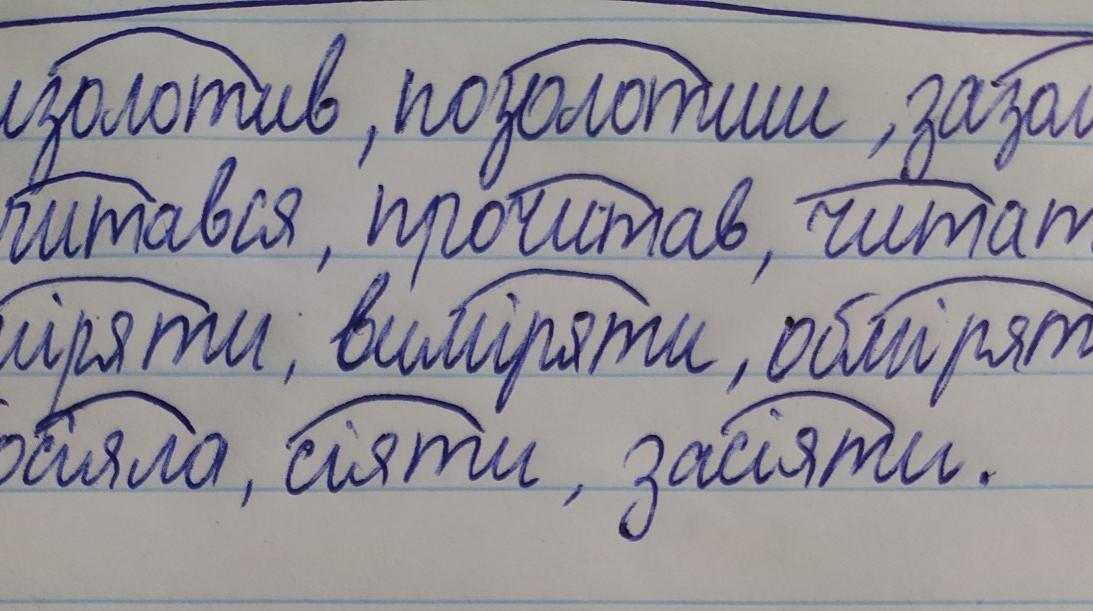 изолотив, позолотили, зазол
читався, прочитав, читат
міряти, виміряти, обмірят
осіяла, сіяти, засіяти.